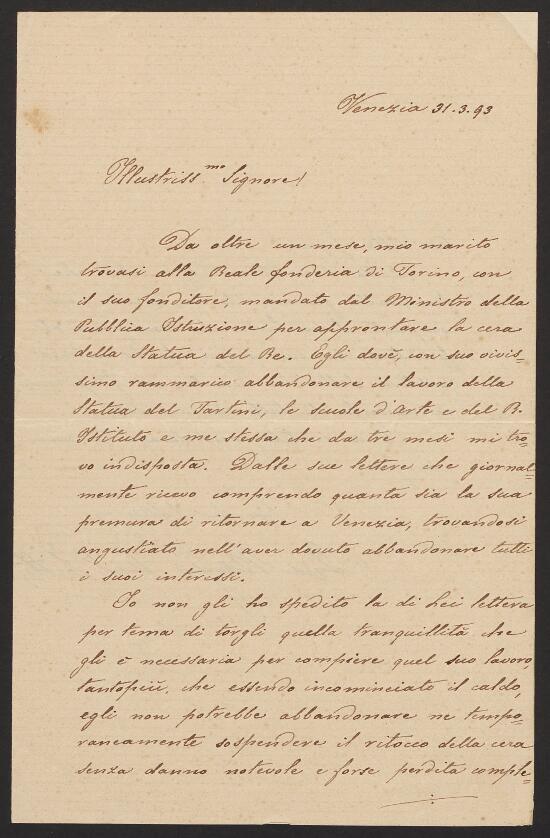 Venezia 31.3.93
Illustriss.mo Signore!
Da oltre un mese, mio marito
trovasi alla Reale fonderia di Torino, con
il suo fonditore, mandato dal Ministro della
Pubblica Istruzione per approntare la cera
della Statua del Re. Egli dovè, con suo vivis=
simo rammarico abbandonare il lavoro della
Statua del Tartini, le scuole d'Arte e del R.
Istituto e me stessa che da tre mesi mi tro=
vo indisposta. Dalle sue lettere che giornal=
mente ricevo comprendo quanta sia la sua
premura di ritornare a Venezia, trovandosi
angustiato nell'aver dovuto abbandonare tutti
i suoi interessi.
Io non gli ho spedito la di Lei lettera
per tema di torgli quella tranquillità che
gli è necessaria per compiere quel suo lavoro,
tantopiù, che essendo incominciato il caldo,
egli non potrebbe abbandonare ne tempo=
raneamente sospendere il ritocco della cera
senza danno notevole e forse perdita comple=